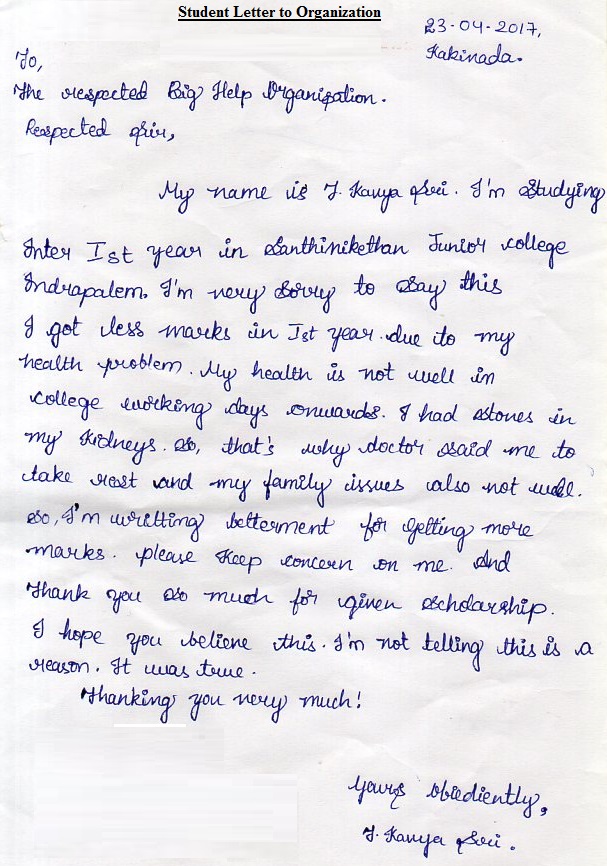 Student Letter to Organization
23-04-2017,
Kakinada.
To,
The respected Big Help Organization.
Respected sir,
My name is T. Kavya Sri. I'm studying
Inter Ist year in Santhinikethan Junior college
Indrapalem. I'm very sorry to say this
I got less marks in Ist year due to my
health problem. My health is not well in
college working days onwards. I had stones in
my kidneys. so, that's why doctor said me to
take rest and my family issues also not well.
so, I'm writting betterment for getting more
marks. please keep concern on me. And
thank you so much for given scholarship.
I hope you believe this. I'm not telling this is a
reason. It was true.
Thanking you very much!
yours obediently,
T. Kavya Sri.